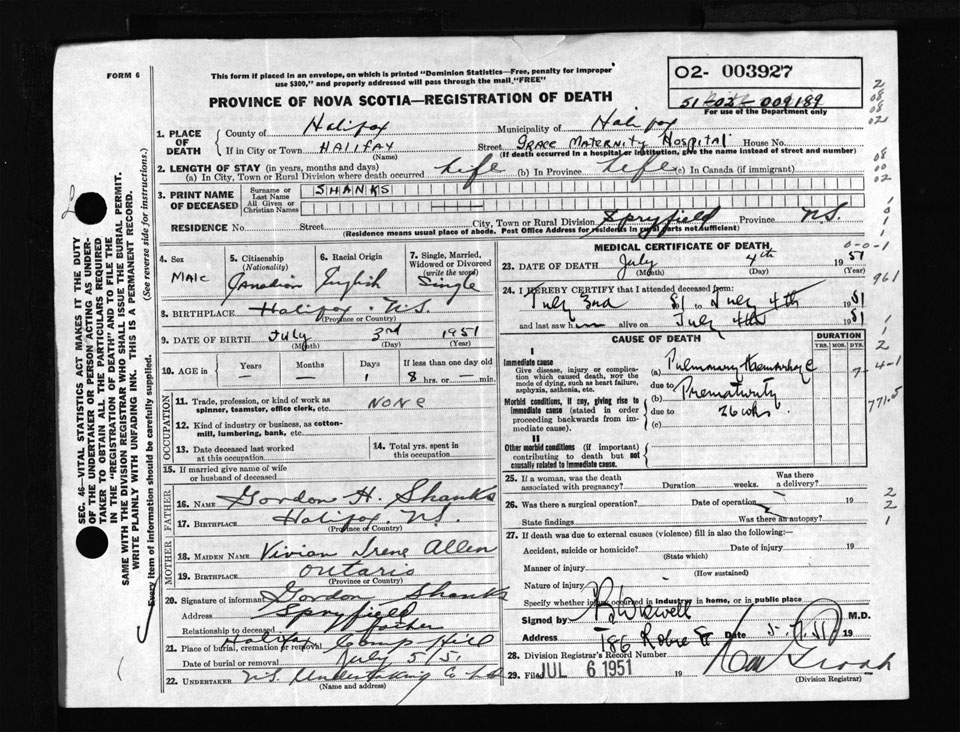 FORM 6
This form if placed in an envelope, on which is printed "Dominion Statistics—Free, penalty for improper
use $300," and properly addressed will pass through the mail, "FREE"
PROVINCE OF NOVA SCOTIA—REGISTRATION OF DEATH
02- 003927
51 02- 009189
For use of the Department only
1. PLACE OF DEATH
County of Halifax
Municipality of Halifax
If in City or Town HALIFAX (Name)
Street GRACE MATERNITY HOSPITAL House No.
(If death occurred in a hospital or institution, give the name instead of street and number)
2. LENGTH OF STAY (in years, months and days)
(a) In City, Town or Rural Division where death occurred Life (b) In Province Life (c) In Canada (if immigrant)
3. PRINT NAME OF DECEASED
Surname or Last Name SHANKS
All Given or Christian Names
RESIDENCE No. Street City, Town or Rural Division Spryfield Province N.S.
(Residence means usual place of abode. Post Office Address for residents in rural parts not sufficient)
4. Sex
Male
5. Citizenship (Nationality)
Canadian
6. Racial Origin
English
7. Single, Married, Widowed or Divorced (write the word)
Single
8. BIRTHPLACE Halifax N.S.
(Province or Country)
9. DATE OF BIRTH July 3rd 1951
(Month) (Day) (Year)
10. AGE in Years Months Days If less than one day old
— — 1 8 hrs. or — min.
OCCUPATION
11. Trade, profession, or kind of work as
spinner, teamster, office clerk, etc. NONE
12. Kind of industry or business, as cotton-
mill, lumbering, bank, etc.
13. Date deceased last worked
at this occupation
14. Total yrs. spent in
this occupation
15. If married give name of wife
or husband of deceased
FATHER
16. NAME Gordon H. Shanks
17. BIRTHPLACE Halifax, N.S.
(Province or Country)
MOTHER
18. MAIDEN NAME Vivian Irene Allen
19. BIRTHPLACE Ontario
(Province or Country)
20. Signature of informant Gordon Shanks
Address Spryfield
Relationship to deceased Father
21. Place of burial, cremation or removal Halifax Camp Hill
Date of burial or removal July 5/51
22. UNDERTAKER N.S. Undertaking Co Ltd
(Name and address)
MEDICAL CERTIFICATE OF DEATH
23. DATE OF DEATH July 4th 1951
(Month) (Day) (Year)
24. I HEREBY CERTIFY that I attended deceased from:
July 2nd 51 to July 4th 1951
and last saw him alive on July 4th 1951
CAUSE OF DEATH
DURATION
YRS. MOS. DYS.
I
Immediate cause
Give disease, injury or complica-
tion which caused death, NOT the
mode of dying, such as heart failure,
asphyxia, asthenia, etc.
(a) Pulmonary Haemorrhage
due to
Morbid conditions, if any, giving rise to
immediate cause (stated in order
proceeding backwards from im-
mediate cause).
(b) Prematurity
due to 26 wks.
(c)
II
Other morbid conditions (if important)
contributing to death but not
causally related to immediate cause.
25. If a woman, was the death
associated with pregnancy? Duration weeks. Was there
a delivery?
26. Was there a surgical operation? Date of operation 19
State findings Was there an autopsy?
27. If death was due to external causes (violence) fill in also the following:
Accident, suicide or homicide? Date of injury 19
(State which)
Manner of injury
(How sustained)
Nature of injury
Specify whether injury occurred in industry, in home, or in public place
Signed by M.D.
Address 786 Robie St Date 5.7.51 19
28. Division Registrar's Record Number
29. Filed JUL 6 1951 19
(Division Registrar)
SEC. 46—VITAL STATISTICS ACT MAKES IT THE DUTY
OF THE UNDERTAKER OR PERSON ACTING AS UNDER-
TAKER TO OBTAIN ALL THE PARTICULARS REQUIRED
IN THE "REGISTRATION OF DEATH" AND TO FILE THE
SAME WITH THE DIVISION REGISTRAR WHO SHALL ISSUE THE BURIAL PERMIT.
WRITE PLAINLY WITH UNFADING INK. THIS IS A PERMANENT RECORD.
Every item of information should be carefully supplied. (See reverse side for instructions.)
2
08
08
02
08
00
02
0-0-1
961
1
2
7-4-1
771.5
2
2
1